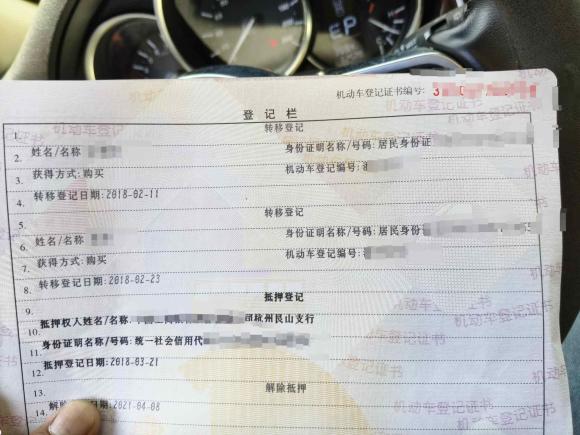 机动车登记证书编号:
登记栏
1. 转移登记
2. 姓名/名称 身份证明名称/号码: 居民身份证
3. 获得方式: 购买 机动车登记编号:
4. 转移登记日期: 2018-02-11
5. 转移登记
6. 姓名/名称 身份证明名称/号码: 居民身份证
7. 获得方式: 购买 机动车登记编号:
8. 转移登记日期: 2018-02-23
9. 抵押登记
10. 抵押权人姓名/名称: 杭州艮山支行
11. 身份证明名称/号码: 统一社会信用代
12. 抵押登记日期: 2018-03-21
13. 解除抵押
14. 解除 日期: 2021-04-08